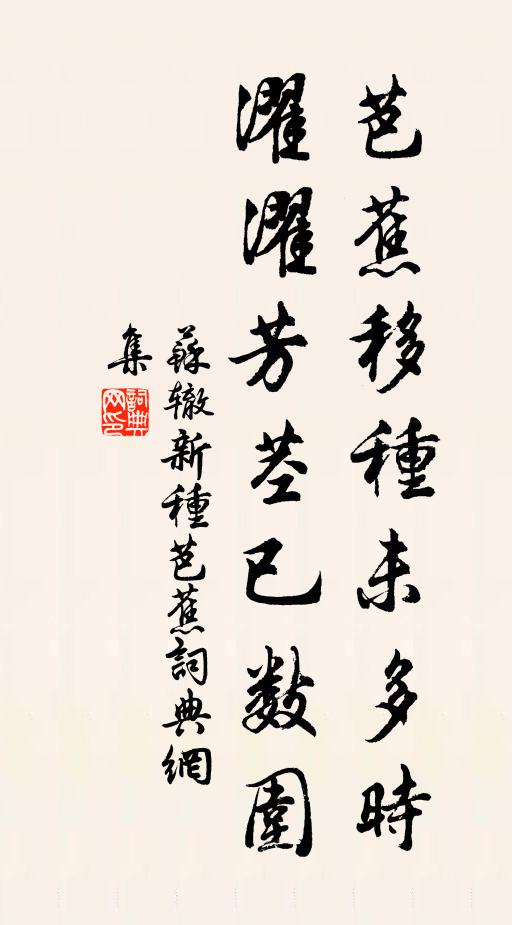 芭蕉移種未多時
濯濯芳莖已數圍
蘇轍新種芭蕉詞典網
集
詞典
网印